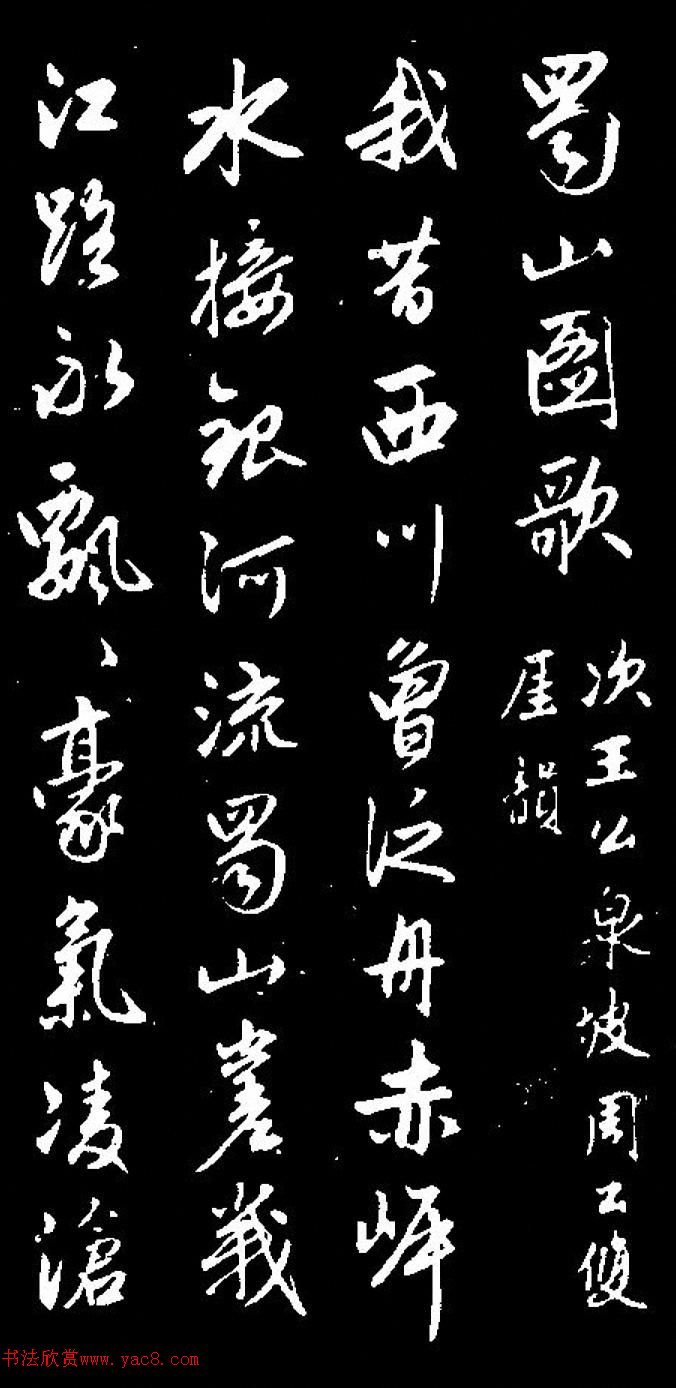 蜀山圖歌
次王公泉坡周公雙
厓韻
我昔西川曾泛舟赤岸
水接銀河流蜀山嵳峩
江路永飄〻豪氣凌滄
书法欣赏www.yac8.com